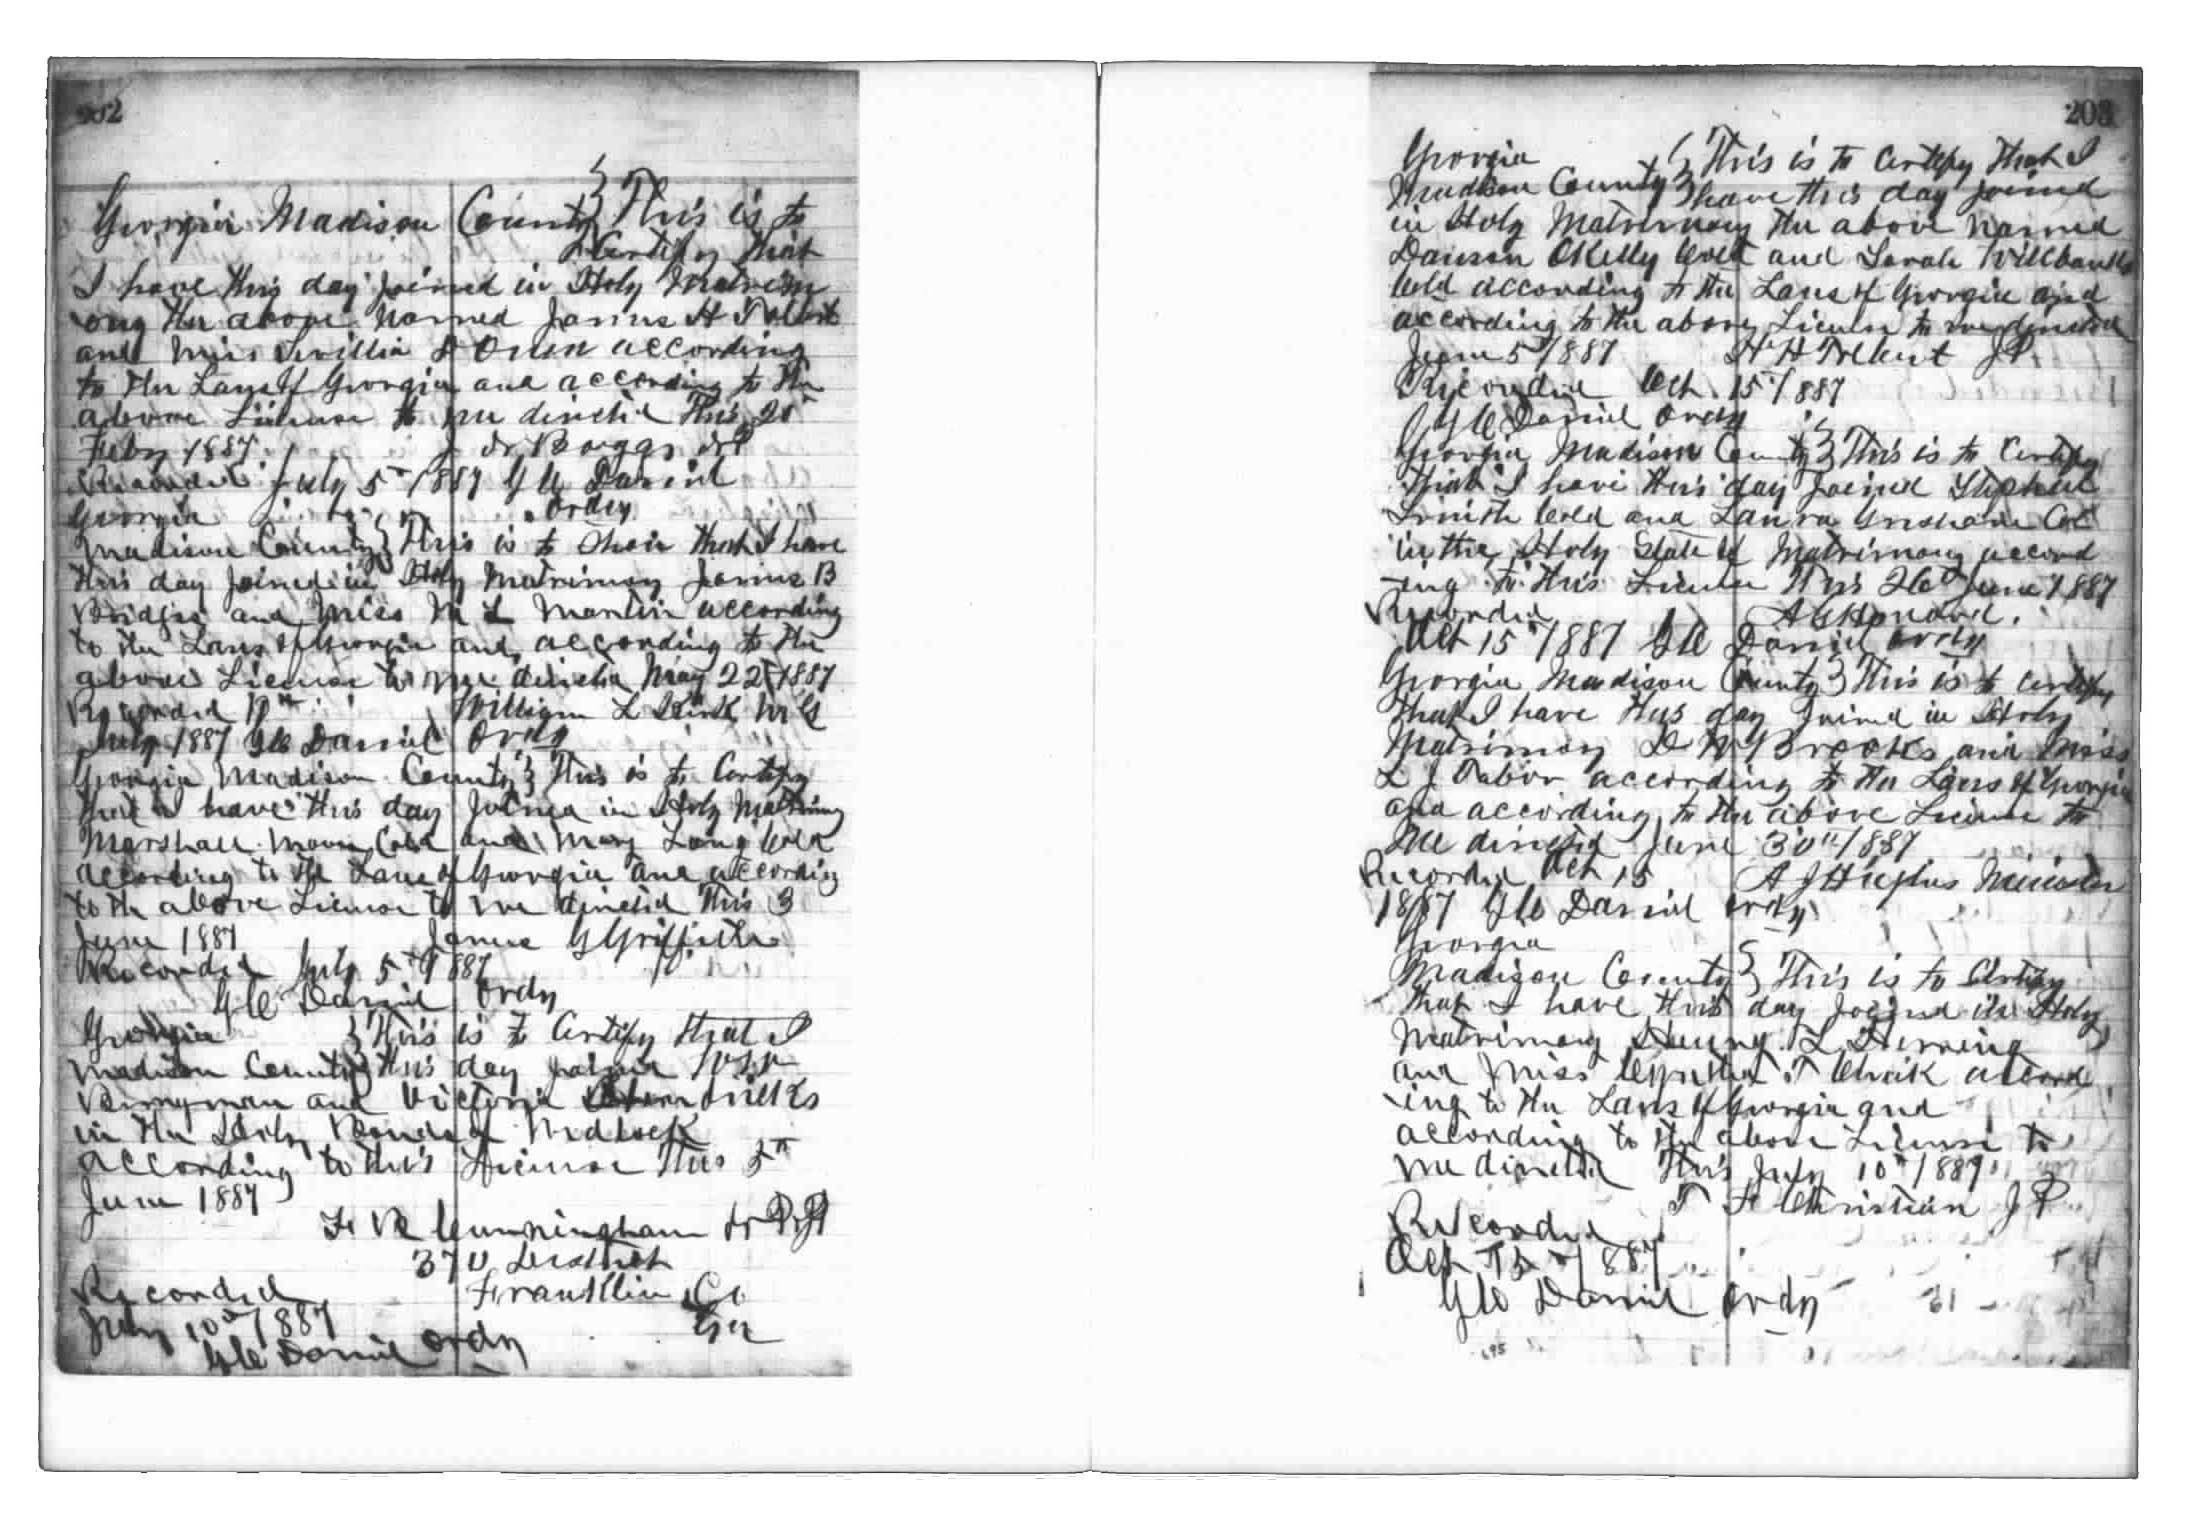 202
Georgia Madison County } This is to
Certify that
I have this day joined in Holy Matrim
ony the above named James H
and Miss according
to the Laws of Georgia and according to the
above License to me directed This 20
Feby 1887 J Boggs
Recorded July 5th 1887 G C Daniel
Georgia Ordy
Madison County } This is to that I have
this day joined in Holy Matrimony James B
Bridges and Miss M L Martin according
to the Laws of Georgia and according to the
above License to me directed May 22 1887
Recorded William L M G
July 1887 G C Daniel Ordy
Georgia Madison County } This is to Certify
that I have this day joined in Holy Matrimony
Marshall Moon Cold and Mary Long Cold
according to the Laws of Georgia and according
to the above License to me directed This 3
June 1887 James G Griffith
Recorded July 5th 1887
G C Daniel Ordy
Georgia } This is to Certify that I
Madison County } this day joined
Berryman and Victoria
in the Holy Bonds of Wedlock
according to this License This 5th
June 1887
F R Cunningham
370 District
Recorded Franklin Co
July 10th/1887 Ga
G C Daniel Ordy
203
Georgia } This is to Certify that I
Madison County } have this day joined
in Holy Matrimony the above named
Dawson OKelly Cold and Sarah Willbanks
Cold according to the Laws of Georgia and
according to the above License to me directed
June 5/1887 H H JP
Recorded Oct 15th/1887
G C Daniel Ordy
Georgia Madison County } This is to Certify
that I have this day joined Stephen
Smith Cold and Laura Col
in the Holy State of Matrimony accord
ing to this License This 26th June 1887
Recorded A C
Oct 15th/1887 G C Daniel Ordy
Georgia Madison County } This is to Certify
that I have this day joined in Holy
Matrimony D W Brooks and Miss
L J Tabor according to the Laws of Georgia
and according to the above License to
Me directed June 30th/1887
Recorded Oct 15 A J Hughes Minister
1887 G C Daniel Ordy
Georgia
Madison County } This is to Certify
that I have this day joined in Holy
Matrimony Henry L
and Miss T Cheek accord
ing to the Laws of Georgia and
according to the above License to
me directed This July 10th/1887
T F Christian J P
Recorded
Oct 15th/1887
G C Daniel Ordy